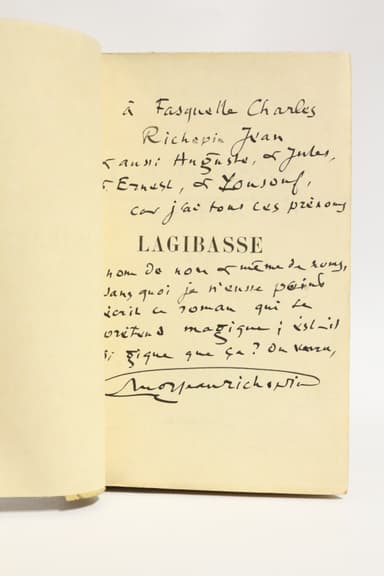 à Fasquelle Charles
Richepin Jean
& aussi Auguste, & Jules,
& Ernest, & Yousouf,
car j'ai tous ces prénoms
LAGIBASSE
nom de nom & même de noms,
sans quoi je n'eusse point
écrit ce roman qui se
prétend magique ; est-il
si gique que ça ? On verra,
Moijeanrichepin